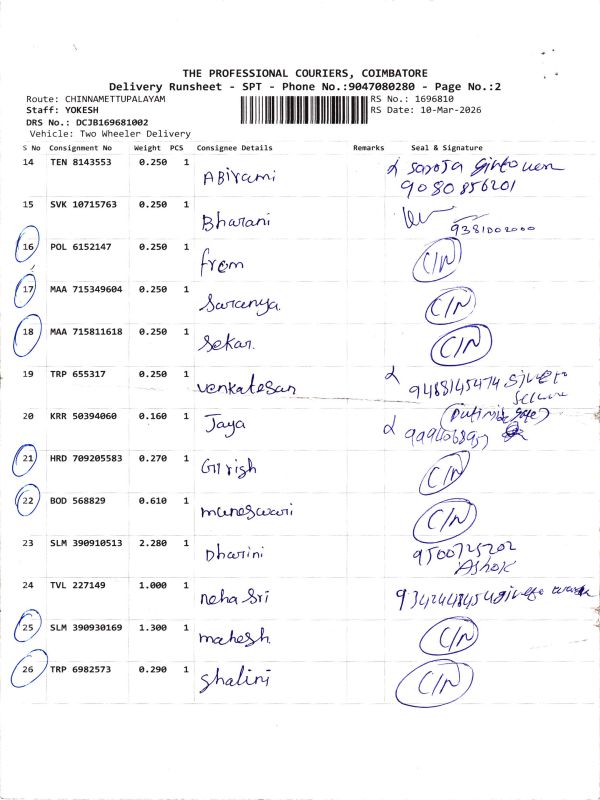 THE PROFESSIONAL COURIERS, COIMBATORE
Delivery Runsheet - SPT - Phone No.:9047080280 - Page No.:2
Route: CHINNAMETTUPALAYAM RS No.: 1696810
Staff: YOKESH RS Date: 10-Mar-2026
DRS No.: DCJB169681002
Vehicle: Two Wheeler Delivery
S No Consignment No Weight PCS Consignee Details Remarks Seal & Signature
14 TEN 8143553 0.250 1 Abirami Saroja
9080856201
15 SVK 10715763 0.250 1 Bharani
9381002000
16 POL 6152147 0.250 1 from C/N
17 MAA 715349604 0.250 1 Saranya. C/N
18 MAA 715811618 0.250 1 Sekar. C/N
19 TRP 655317 0.250 1 venkatesan 9468145474
20 KRR 50394060 0.160 1 Jaya
21 HRD 709205583 0.270 1 Girish C/N
22 BOD 568829 0.610 1 muneswari C/N
23 SLM 390910513 2.280 1 Dharini 9500725202
Ashok
24 TVL 227149 1.000 1 neha sri
25 SLM 390930169 1.300 1 mahesh C/N
26 TRP 6982573 0.290 1 shalini C/N